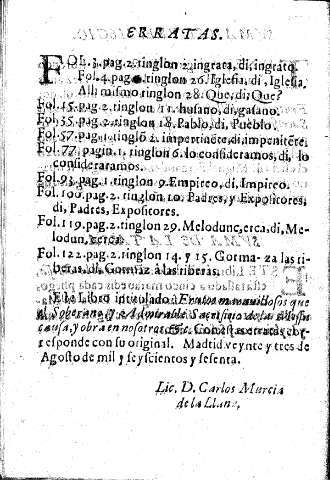 ERRATAS.
FOL. 3. pag. 2. ringlon 2. ingrata, di, ingrato.
Fol. 4. pag. ringlon 26. Iglesia, di, Iglesia.
Alli mismo ringlon 28. Que, di, Que?
Fol. 15. pag. 2. ringlon 11. husano, di, gusano.
Fol. 55. pag. 2. ringlon 18. Pablo, di, Pueblo.
Fol. 57. pag. 1. ringlō 2. impertinēte, di, impenitēte.
Fol. 77. pagin. 1. ringlon 6. lo consideramos, di, lo
consideraramos.
Fol. 93. pag. 1. ringlon 9. Empireo, di, Impireo.
Fol. 100. pag. 2. ringlon 10. Padres, y Expositores,
di, Padres, Expositores.
Fol. 119. pag. 2. ringlon 29. Melodunc, erca, di, Me-
lodun, cerca.
Fol. 122. pag. 2. ringlon 14. y 15. Gorma- za las ri-
beras, di, Gormaz à las riberas.
Este Libro intitulado Frutos marauillosos que
el Soberano, y Admirable Sacrificio de la Missa
causa, y obra en nosotros, &c. Con estas erratas cor-
responde con su original. Madrid veynte y tres de
Agosto de mil y seyscientos y sesenta.
Lic. D. Carlos Murcia
de la Llana.